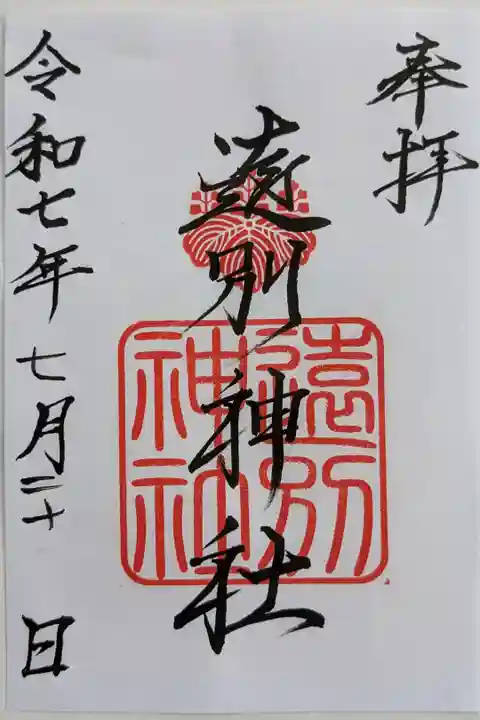 奉拝
遠別神社
遠別
神社
令和七年七月二十日